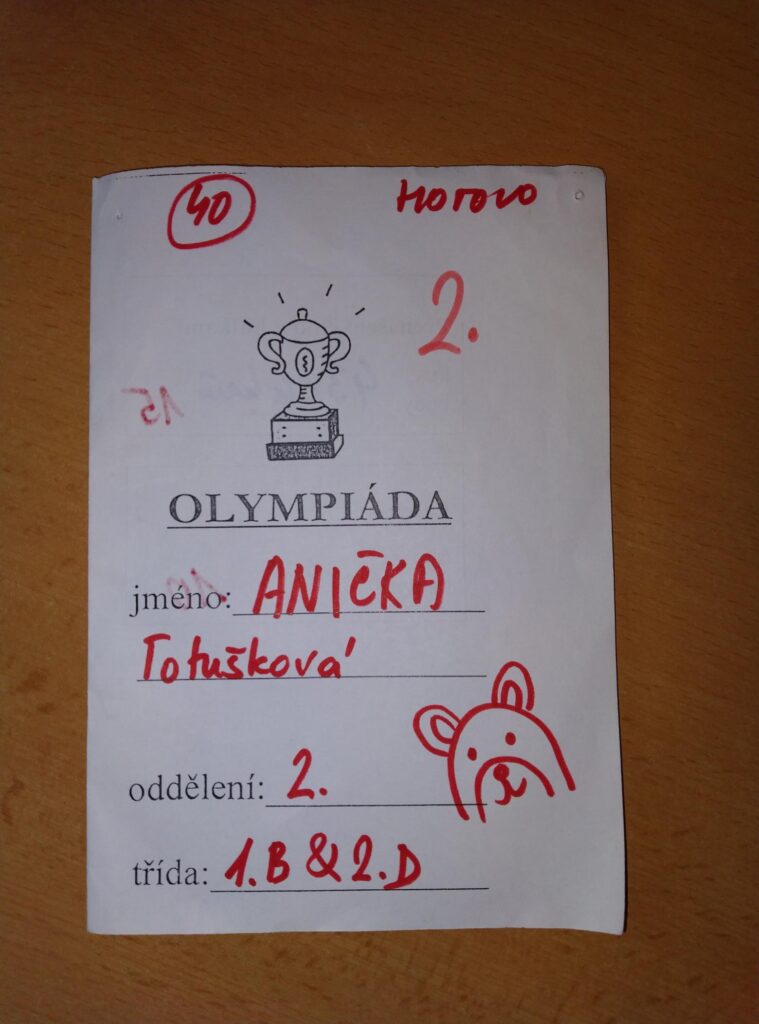 40 HOTOVO
2.
15
OLYMPIÁDA
jméno: ANIČKA
Totušková
oddělení: 2.
třída: 1.B & 2.D